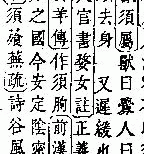 須屬獸曰釁人曰
去身　又遲緩也
官書發女註正義
羊傳作須朐前漢
之國今安定陰密
須殘蕪疏詩谷風